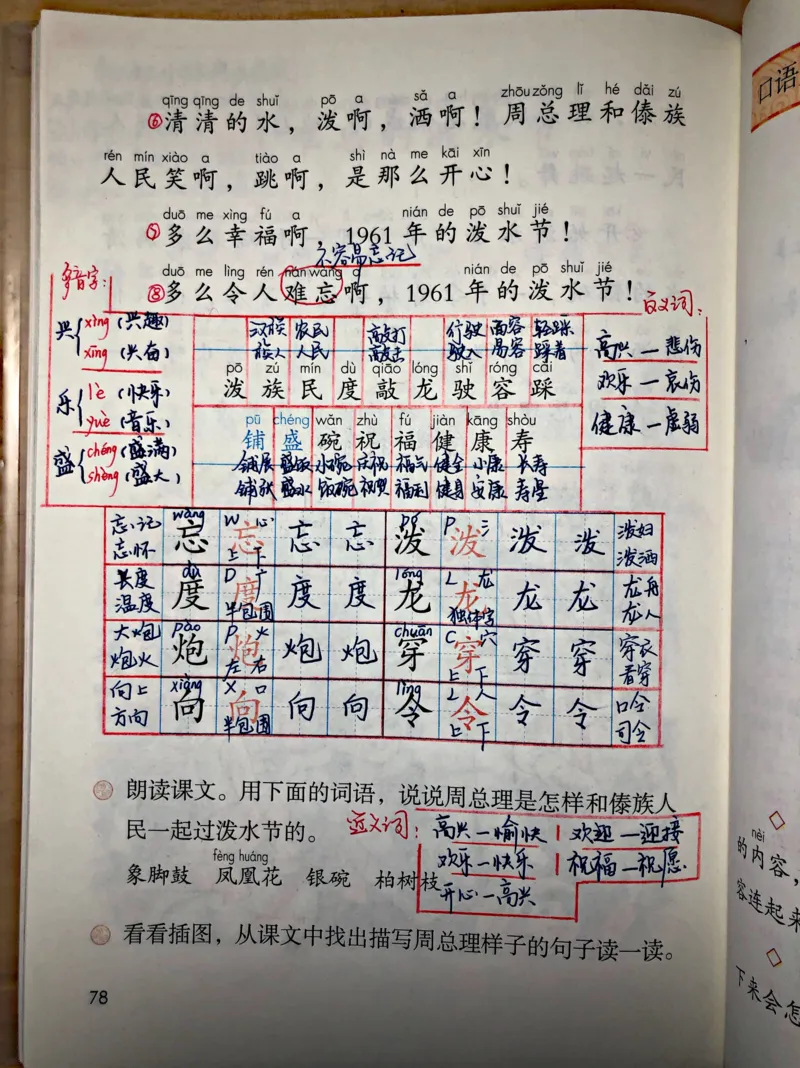 qīng qīng de shuǐ pō a sǎ a zhōu zǒng lǐ hé dǎi zú
⑥清清的水，泼啊，洒啊！周总理和傣族
rén mín xiào a tiào a shì nà me kāi xīn
人民笑啊，跳啊，是那么开心！
duō me xìng fú a nián de pō shuǐ jié
⑦多么幸福啊，1961年的泼水节！
不容易忘记
duō me lìng rén nán wàng a nián de pō shuǐ jié
⑧多么令人难忘啊，1961年的泼水节！
多音字：
兴 xìng（兴趣）
xīng（兴奋）
乐 lè（快乐）
yuè（音乐）
盛 chéng（盛满）
shèng（盛大）
反义词：
高兴—悲伤
欢乐—哀伤
健康—虚弱
汉族 农民 敲打 行驶 面容 轻踩
族人 人民 敲击 驶入 易容 踩着
pō zú mín dù qiāo lóng shǐ róng cǎi
泼 族 民 度 敲 龙 驶 容 踩
pū chéng wǎn zhù fú jiàn kāng shòu
铺 盛 碗 祝 福 健 康 寿
铺展 盛饭 小碗 庆祝 福气 健全 小康 长寿
铺张 盛水 饭碗 祝贺 福利 健身 安康 寿星
wàng W 心 pō P 氵
忘记 忘 忘 忘 忘 泼 泼 泼 泼 泼妇
忘怀 上 下 泼洒
dù D 广 lóng L 龙
长度 度 度 度 度 龙 龙 龙 龙 龙舟
温度 半包围 独体字 龙人
pào P 火 chuān C 穴
大炮 炮 炮 炮 炮 穿 穿 穿 穿 穿衣
炮火 左 右 上 下 看穿
xiàng X 口 lìng L 人
向上 向 向 向 向 令 令 令 令 口令
方向 半包围 上 下 司令
朗读课文。用下面的词语，说说周总理是怎样和傣族人
民一起过泼水节的。
近义词：
高兴—愉快 欢迎—迎接
欢乐—快乐 祝福—祝愿
开心—高兴
fèng huáng
象脚鼓 凤凰花 银碗 柏树枝
看看插图，从课文中找出描写周总理样子的句子读一读。
78
口语
nèi
的内容，
容连起来
下来会怎